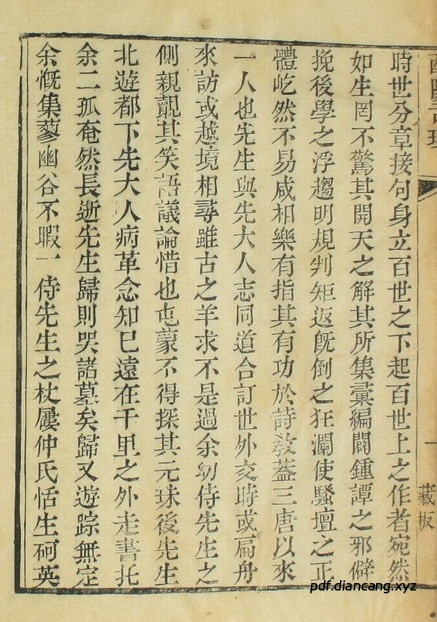 時世分章接句身立百世之下起百世上之作者宛然
如生罔不驚其開天之解其所集彙編闢鍾譚之邪僻
挽後學之浮趨明規判矩返旣倒之狂瀾使騷壇之正
體屹然不易咸相樂有指其有功於詩敎葢三唐以來
一人也先生與先大人志同道合訂世外交時或扁舟
來訪或越境相尋雖古之羊求不是過余幼侍先生之
側親覿其笑語議論惜也屯蒙不得探其元珠後先生
北遊都下先大人病革念知已遠在千里之外走書托
余二孤奄然長逝先生歸則哭諸墓矣歸又遊踪無定
余慨集蓼幽谷不暇一侍先生之杖屨仲氏恬生砢英
一
藏板
pdf.diancang.xyz